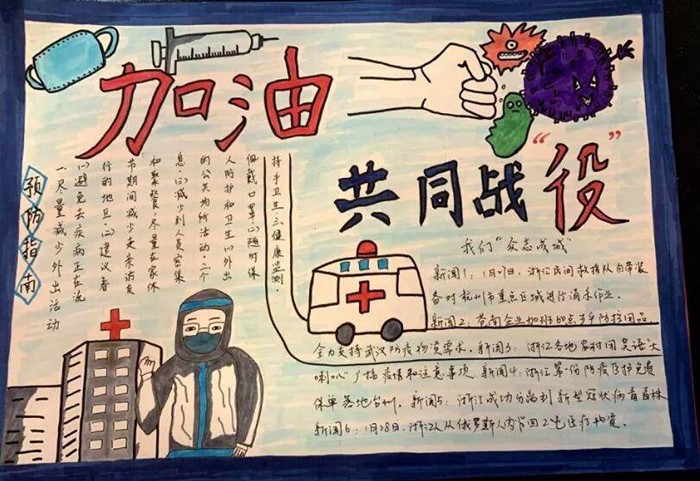 加油
共同战“役”
预防指南
一.尽量减少外出活动
(1)避免去疾病正在流
行的地区.(2)建议春
节期间减少走亲访友
和聚餐,尽量在家休
息.(3)减少到人员密集
的公共场所活动.二.个
人防护和卫生(1)外出
佩戴口罩(2)随时保
持手卫生.三.健康监测.
我们“众志成城”
新闻1:1月 日,浙江民间救援队自带装
备对杭州市重点区域进行消杀作业。
新闻2:苍南企业加班 防护用品
全力支持武汉防疫物资需求.新闻3:浙江各地农村用 大
喇叭广播疫情和注意事项.新闻4:浙江第一份防疫医护免费
保单落地台州.新闻5:浙江成功分离到新型冠状病毒毒株
新闻6:1月28日,浙江人从俄罗斯人肉背回2吨医疗物资。